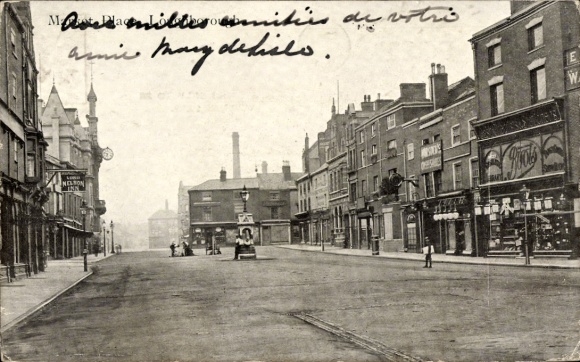 Market Place, Loughborough
Avec milles amitiés de votre
amie Mary de Lisle.
LORD
NELSON
INN